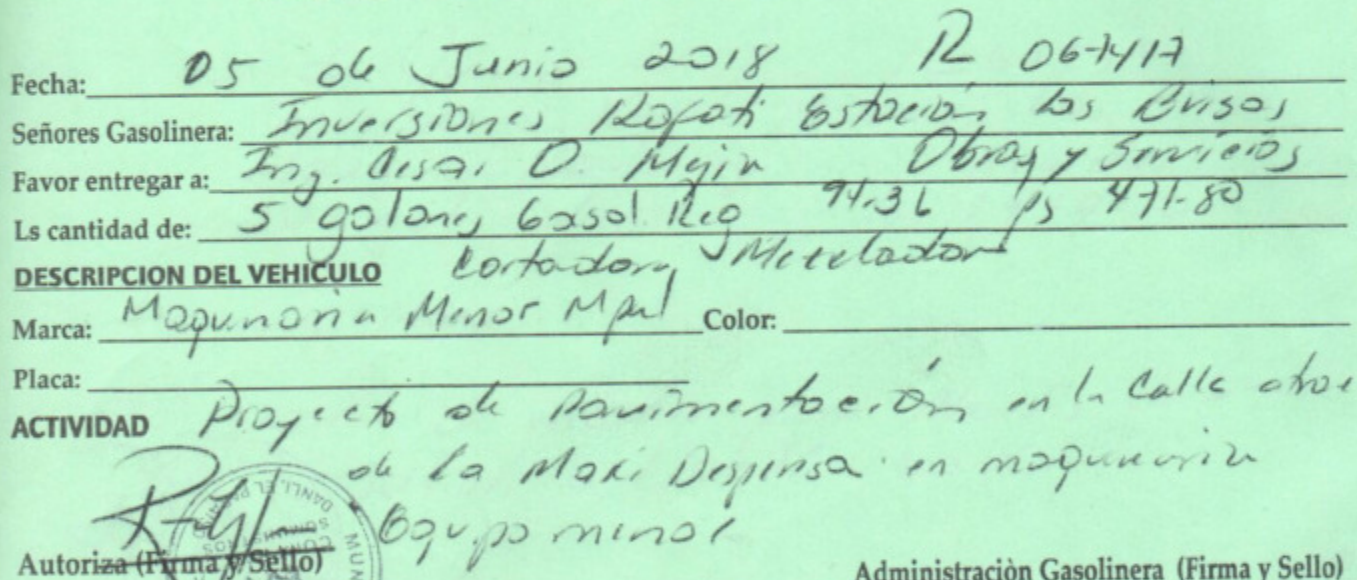 Fecha: 05 de Junio 2018 R 06-1417
Señores Gasolinera: Inversiones Rofoti Estación las Brisas
Favor entregar a: Ing. Cesar O. Mejia Obras y Servicios
Ls cantidad de: 5 galones Gasol. Reg 94.36 Ps 471-80
DESCRIPCION DEL VEHICULO Cortadora y Mezcladora
Marca: Maquinaria Menor Mpal Color:
Placa:
ACTIVIDAD Proyecto de Pavimentación en la Calle atras
de la Maxi Despensa en maquinaria
Equipo menor
Autoriza (Firma y Sello) Administraciòn Gasolinera (Firma y Sello)
DANLI, EL
MUN